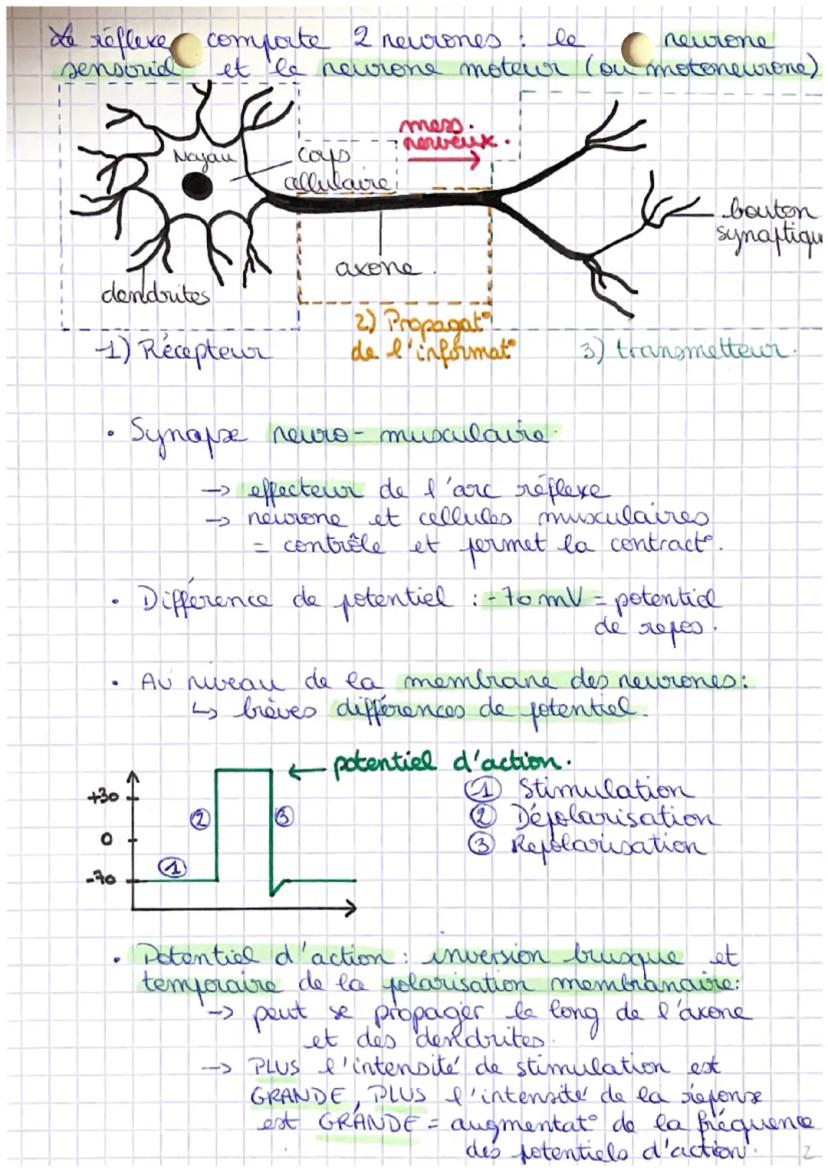 Le réflexe comporte 2 neurones : le neurone
sensoriel et le neurone moteur (ou motoneurone)
mess.
nerveux.
Noyau
corps
cellulaire
bouton
synaptiqu
axone.
dendrites
1) Récepteur
2) Propagat°
de l'informat°
3) transmetteur.
• Synapse neuro-musculaire.
→ effecteur de l'arc réflexe
→ neurone et cellules musculaires
= contrôle et permet la contract°.
• Différence de potentiel : -70 mV = potentiel
de repos.
• Au niveau de la membrane des neurones :
↳ brèves différences de potentiel.
← potentiel d'action.
+30
0
-70
①
②
③
① Stimulation
② Dépolarisation
③ Repolarisation
• Potentiel d'action : inversion brusque et
temporaire de la polarisation membranaire :
→ peut se propager le long de l'axone
et des dendrites.
→ PLUS l'intensité de stimulation est
GRANDE, PLUS l'intensité de la réponse
est GRANDE = augmentat° de la fréquence
des potentiels d'action.
2